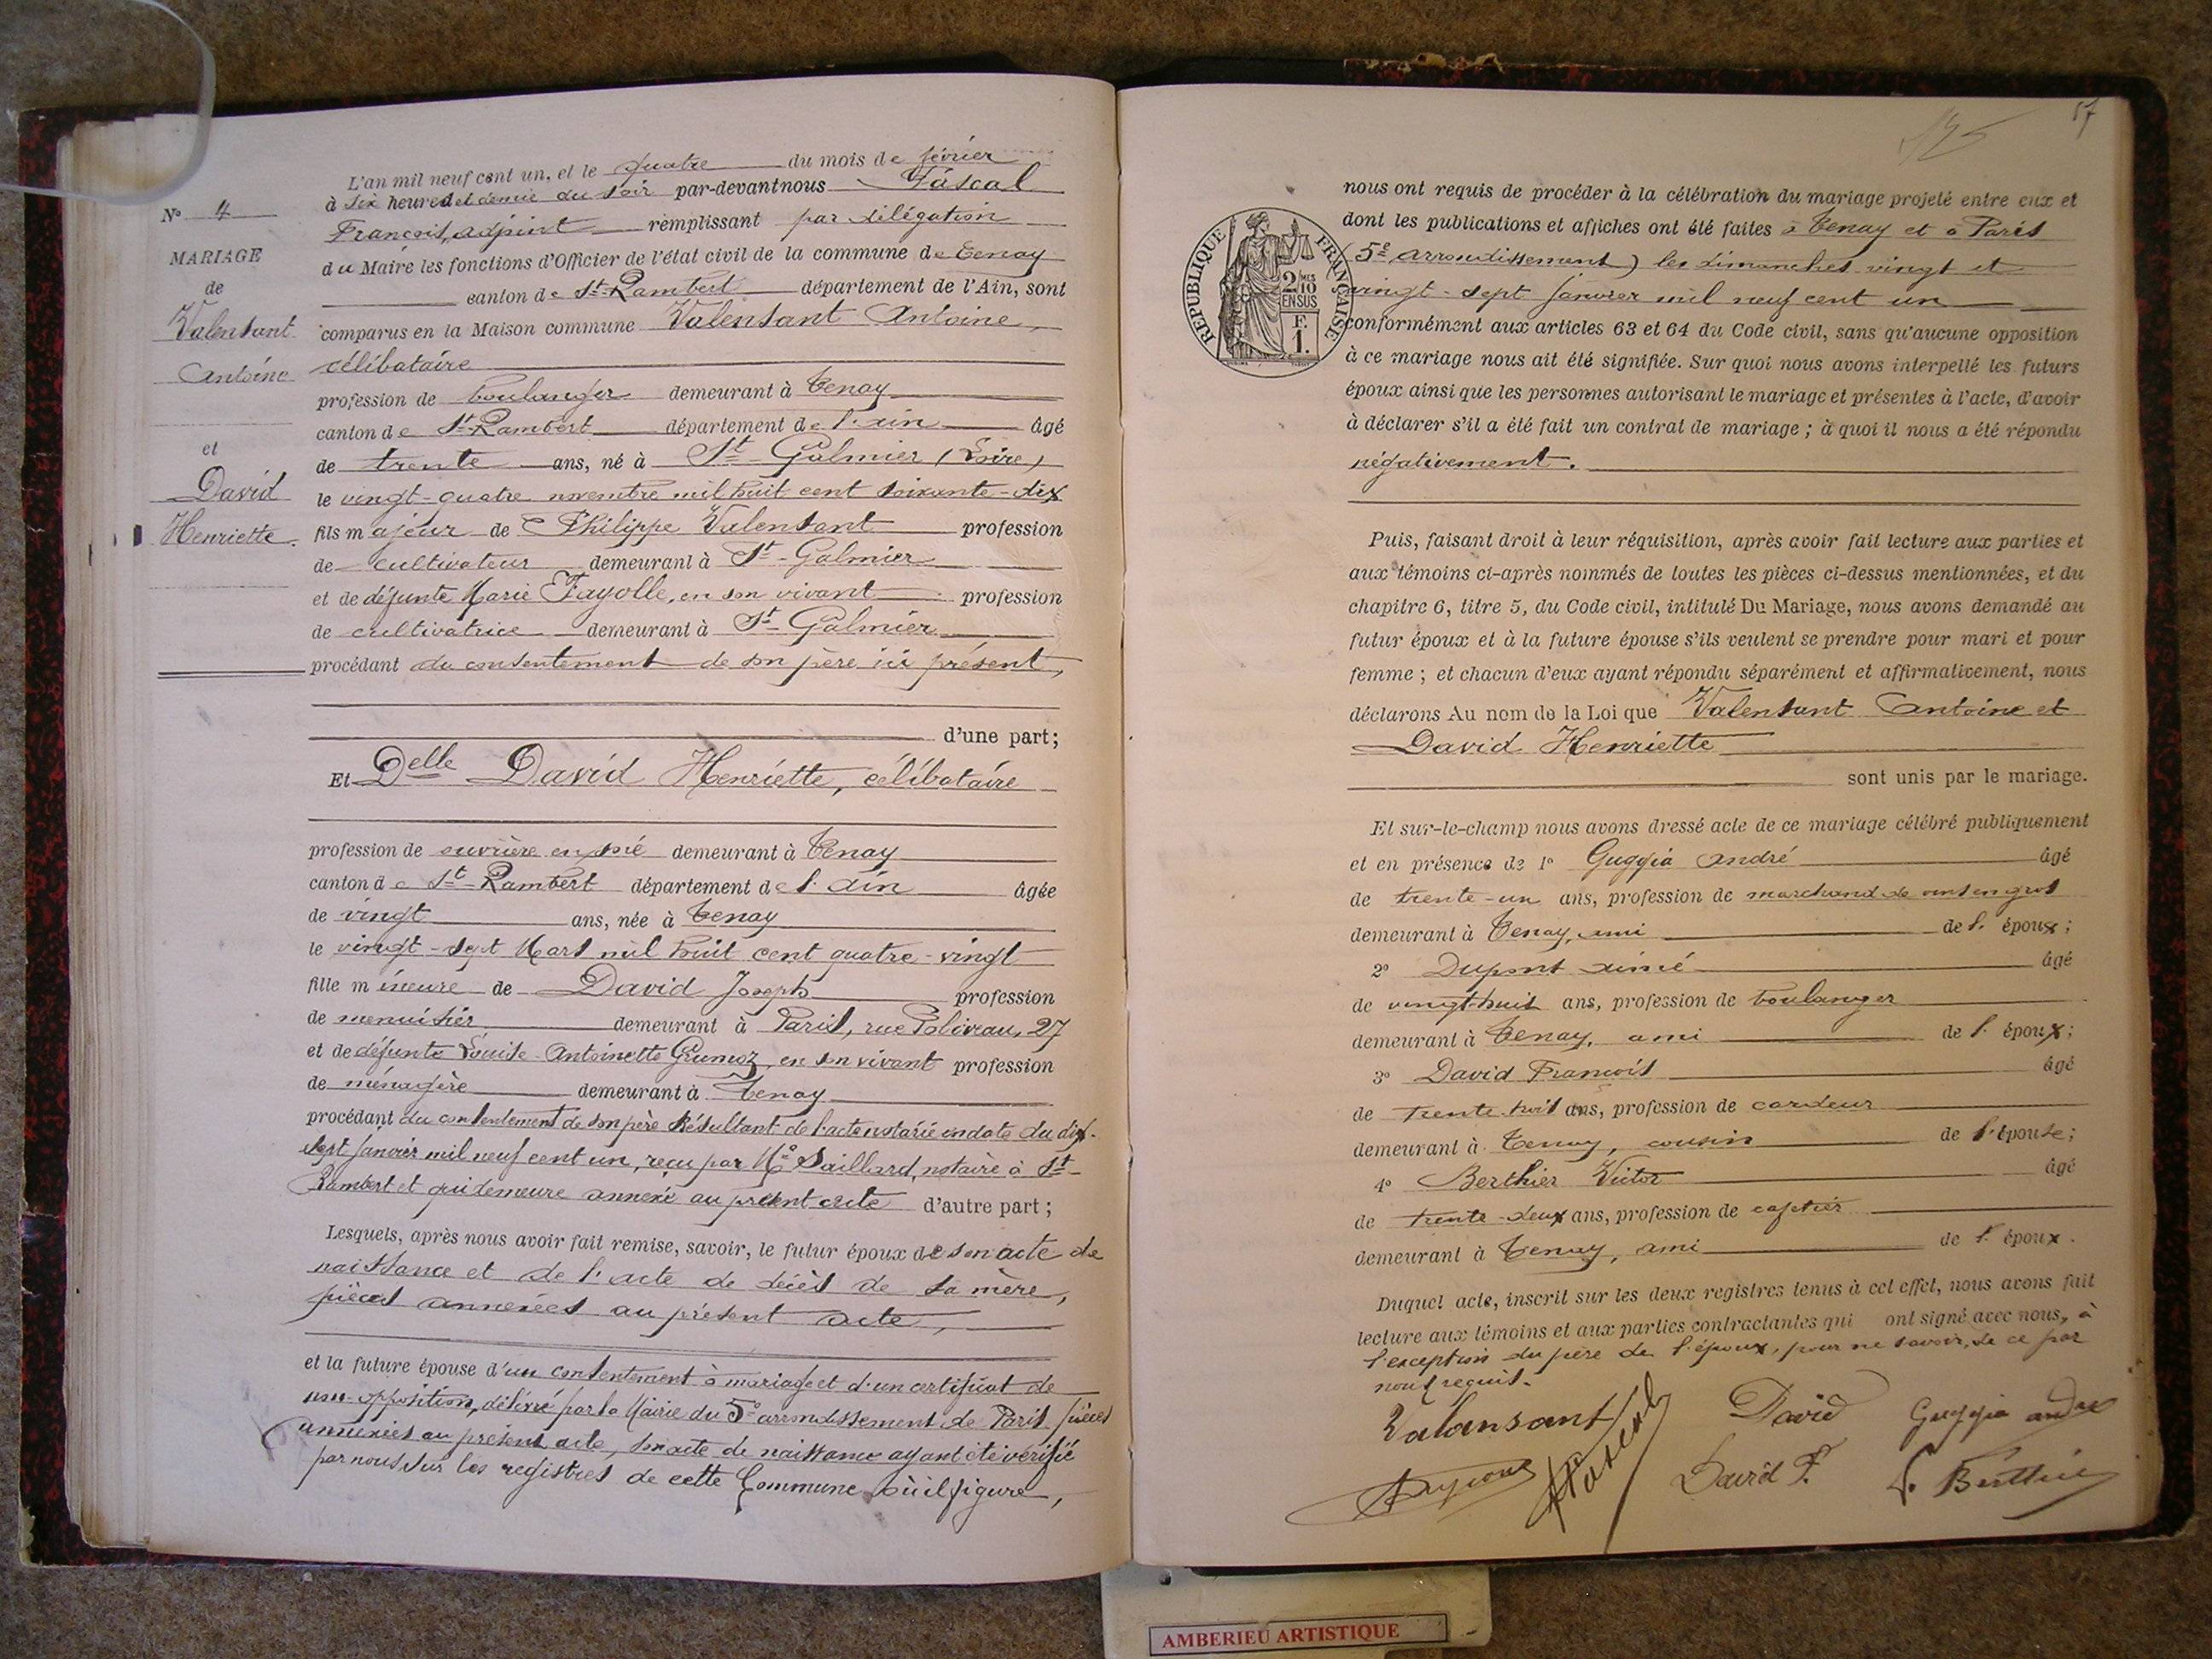 L'an mil neuf cent un, et le quatre du mois de février
à six heures et demie du soir par-devant nous Pascal
François, adjoint remplissant par délégation
du Maire les fonctions d'Officier de l'état civil de la commune de Tenay
canton de St-Rambert département de l'Ain, sont
comparus en la Maison commune Valensant Antoine,
célibataire
profession de boulanger demeurant à Tenay
canton de St-Rambert département de l'Ain âgé
de trente ans, né à St-Galmier (Loire)
le vingt-quatre novembre mil huit cent soixante-dix
fils majeur de Philippe Valensant profession
de cultivateur demeurant à St-Galmier
et de défunte Marie Fayolle, en son vivant profession
de cultivatrice demeurant à St-Galmier
procédant du consentement de son père ici présent,
d'une part;
Et Delle David Henriette, célibataire
profession de ouvrière en soie demeurant à Tenay
canton de St-Rambert département de l'Ain âgée
de vingt ans, née à Tenay
le vingt-sept Mars mil huit cent quatre-vingt
fille mineure de David Joseph profession
de menuisier demeurant à Paris, rue Poliveau, 27
et de défunte Louise-Antoinette Grumoz, en son vivant profession
de ménagère demeurant à Tenay
procédant du consentement de son père résultant de l'acte notarié en date du dix-
sept janvier mil neuf cent un, reçu par Me Saillard, notaire à St-
Rambert et qui demeure annexé au présent acte d'autre part;
Lesquels, après nous avoir fait remise, savoir, le futur époux de son acte de
naissance et de l'acte de décès de sa mère,
pièces annexées au présent acte,
et la future épouse d'un consentement à mariage et d'un certificat de
non-opposition, délivré par la Mairie du 5e arrondissement de Paris pièces
annexées au présent acte, son acte de naissance ayant été vérifié
par nous sur les registres de cette Commune où il figure,
No 4
MARIAGE
de
Valensant
Antoine
et
David
Henriette.
57
RÉPUBLIQUE FRANÇAISE
2 MES
10
EN SUS
F.
1.
nous ont requis de procéder à la célébration du mariage projeté entre eux et
dont les publications et affiches ont été faites à Tenay et à Paris
(5e arrondissement) les dimanches vingt et
vingt-sept janvier mil neuf cent un
conformément aux articles 63 et 64 du Code civil, sans qu'aucune opposition
à ce mariage nous ait été signifiée. Sur quoi nous avons interpellé les futurs
époux ainsi que les personnes autorisant le mariage et présentes à l'acte, d'avoir
à déclarer s'il a été fait un contrat de mariage; à quoi il nous a été répondu
négativement.
Puis, faisant droit à leur réquisition, après avoir fait lecture aux parties et
aux témoins ci-après nommés de toutes les pièces ci-dessus mentionnées, et du
chapitre 6, titre 5, du Code civil, intitulé Du Mariage, nous avons demandé au
futur époux et à la future épouse s'ils veulent se prendre pour mari et pour
femme; et chacun d'eux ayant répondu séparément et affirmativement, nous
déclarons Au nom de la Loi que Valensant Antoine et
David Henriette
sont unis par le mariage.
Et sur-le-champ nous avons dressé acte de ce mariage célébré publiquement
et en présence de 1o Guggia André âgé
de trente-un ans, profession de marchand de vins en gros
demeurant à Tenay, ami de l'époux;
2o Dupont Aimé âgé
de vingt-huit ans, profession de boulanger
demeurant à Tenay, ami de l'époux;
3o David François âgé
de trente-trois ans, profession de cardeur
demeurant à Tenay, cousin de l'épouse;
4o Berthier Victor âgé
de trente-deux ans, profession de cafetier
demeurant à Tenay, ami de l'époux.
Duquel acte, inscrit sur les deux registres tenus à cet effet, nous avons fait
lecture aux témoins et aux parties contractantes qui ont signé avec nous, à
l'exception du père de l'époux, pour ne savoir, de ce par
nous requis.
Valansant David Guggia andré
Dupont F Pascal David F. V. Berthier
AMBERIEU ARTISTIQUE